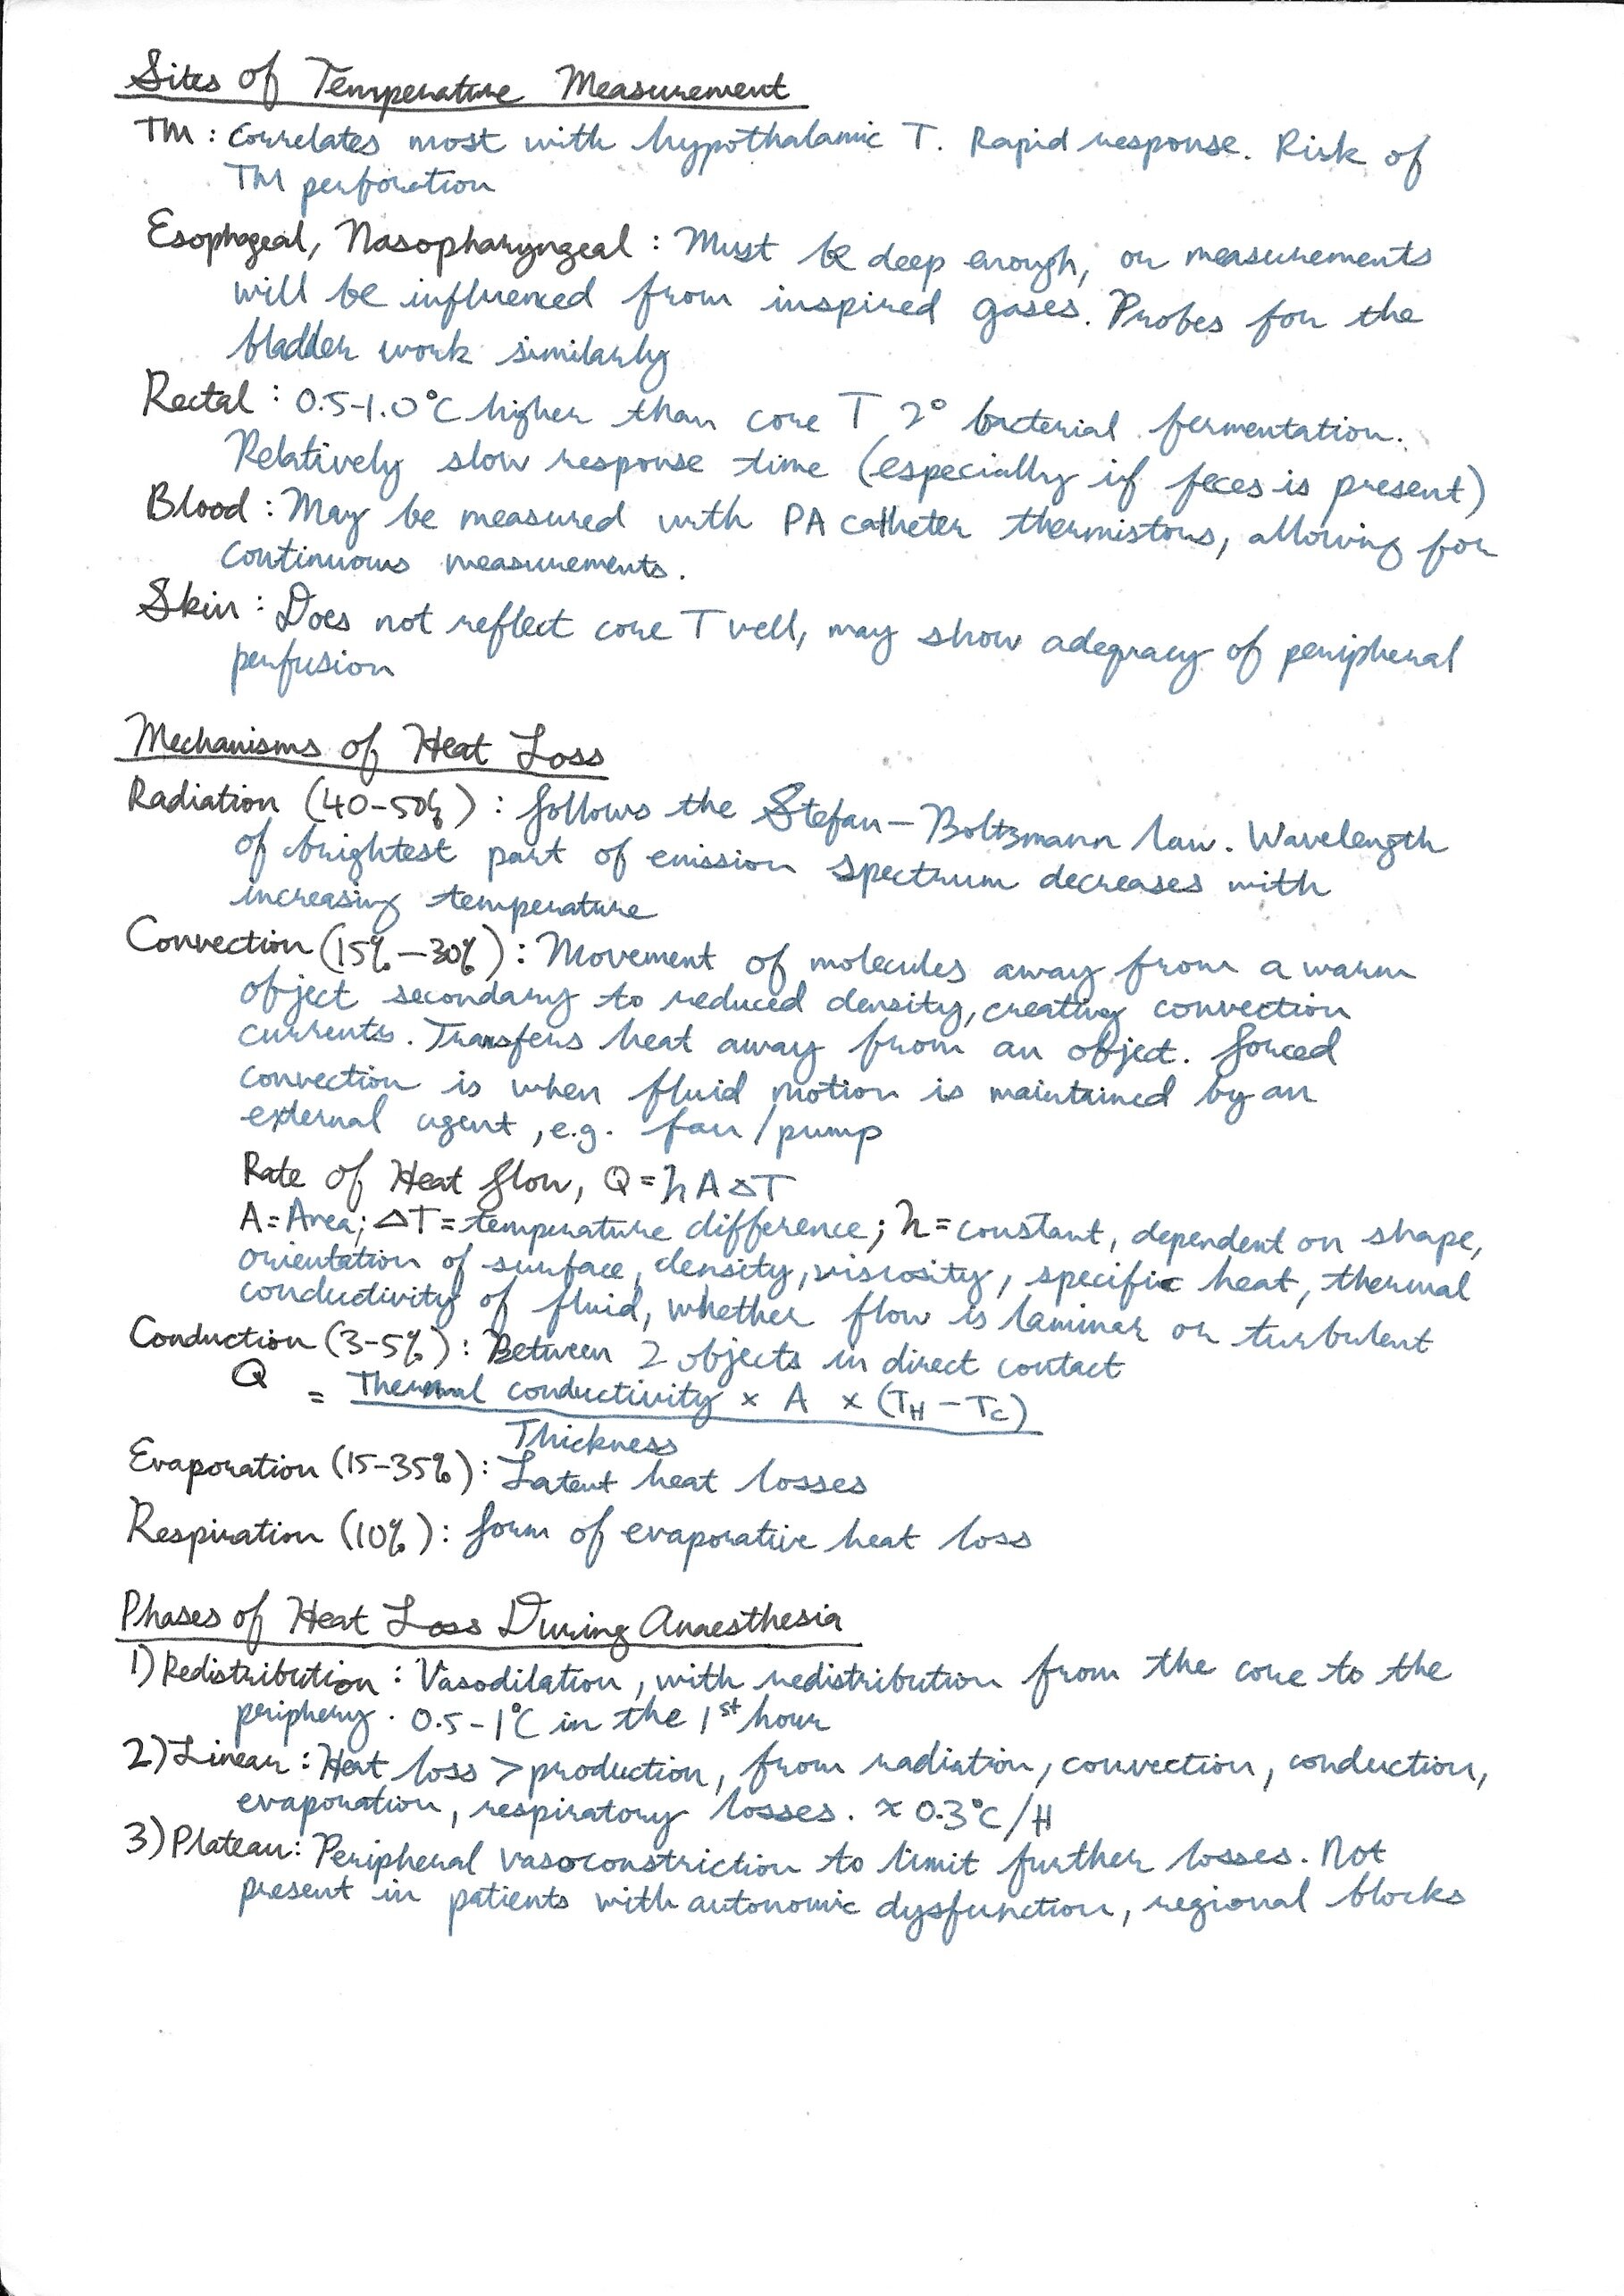 Sites of Temperature Measurement
TM : Correlates most with hypothalamic T. Rapid response. Risk of
TM perforation
Esophageal, Nasopharyngeal : Must be deep enough, or measurements
will be influenced from inspired gases. Probes for the
bladder work similarly
Rectal : 0.5-1.0°C higher than core T 2° bacterial fermentation.
Relatively slow response time (especially if feces is present)
Blood : May be measured with PA catheter thermistors, allowing for
continuous measurements.
Skin : Does not reflect core T well, may show adequacy of peripheral
perfusion
Mechanisms of Heat Loss
Radiation (40-50%) : follows the Stefan-Boltzmann law. Wavelength
of brightest part of emission spectrum decreases with
increasing temperature
Convection (15%-30%) : Movement of molecules away from a warm
object secondary to reduced density, creating convection
currents. Transfers heat away from an object. Forced
convection is when fluid motion is maintained by an
external agent, e.g. fan/pump
Rate of Heat flow, Q = h A ΔT
A = Area; ΔT = temperature difference; h = constant, dependent on shape,
orientation of surface, density, viscosity, specific heat, thermal
conductivity of fluid, whether flow is laminar or turbulent
Conduction (3-5%) : Between 2 objects in direct contact
Q = Thermal conductivity x A x (TH - TC)
Thickness
Evaporation (15-35%) : Latent heat losses
Respiration (10%) : form of evaporative heat loss
Phases of Heat Loss During Anaesthesia
1) Redistribution : Vasodilation, with redistribution from the core to the
periphery. 0.5-1°C in the 1st hour
2) Linear : Heat loss > production, from radiation, convection, conduction,
evaporation, respiratory losses. ≈ 0.3°C/H
3) Plateau : Peripheral vasoconstriction to limit further losses. Not
present in patients with autonomic dysfunction, regional blocks